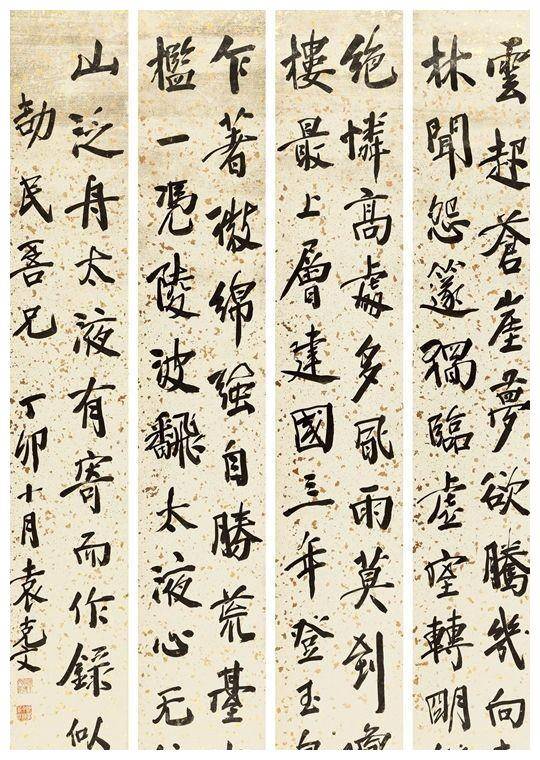 雲起蒼崖夢欲騰幾向
林聞怨篴獨臨虛室轉明
絕憐高處多風雨莫到
樓最上層建國三年登玉
乍著微綿強自勝荒臺
檻一憑陵波飜太液心无
山泛舟太液有寄而作錄似
劼民吾兄 丁卯十月袁克文